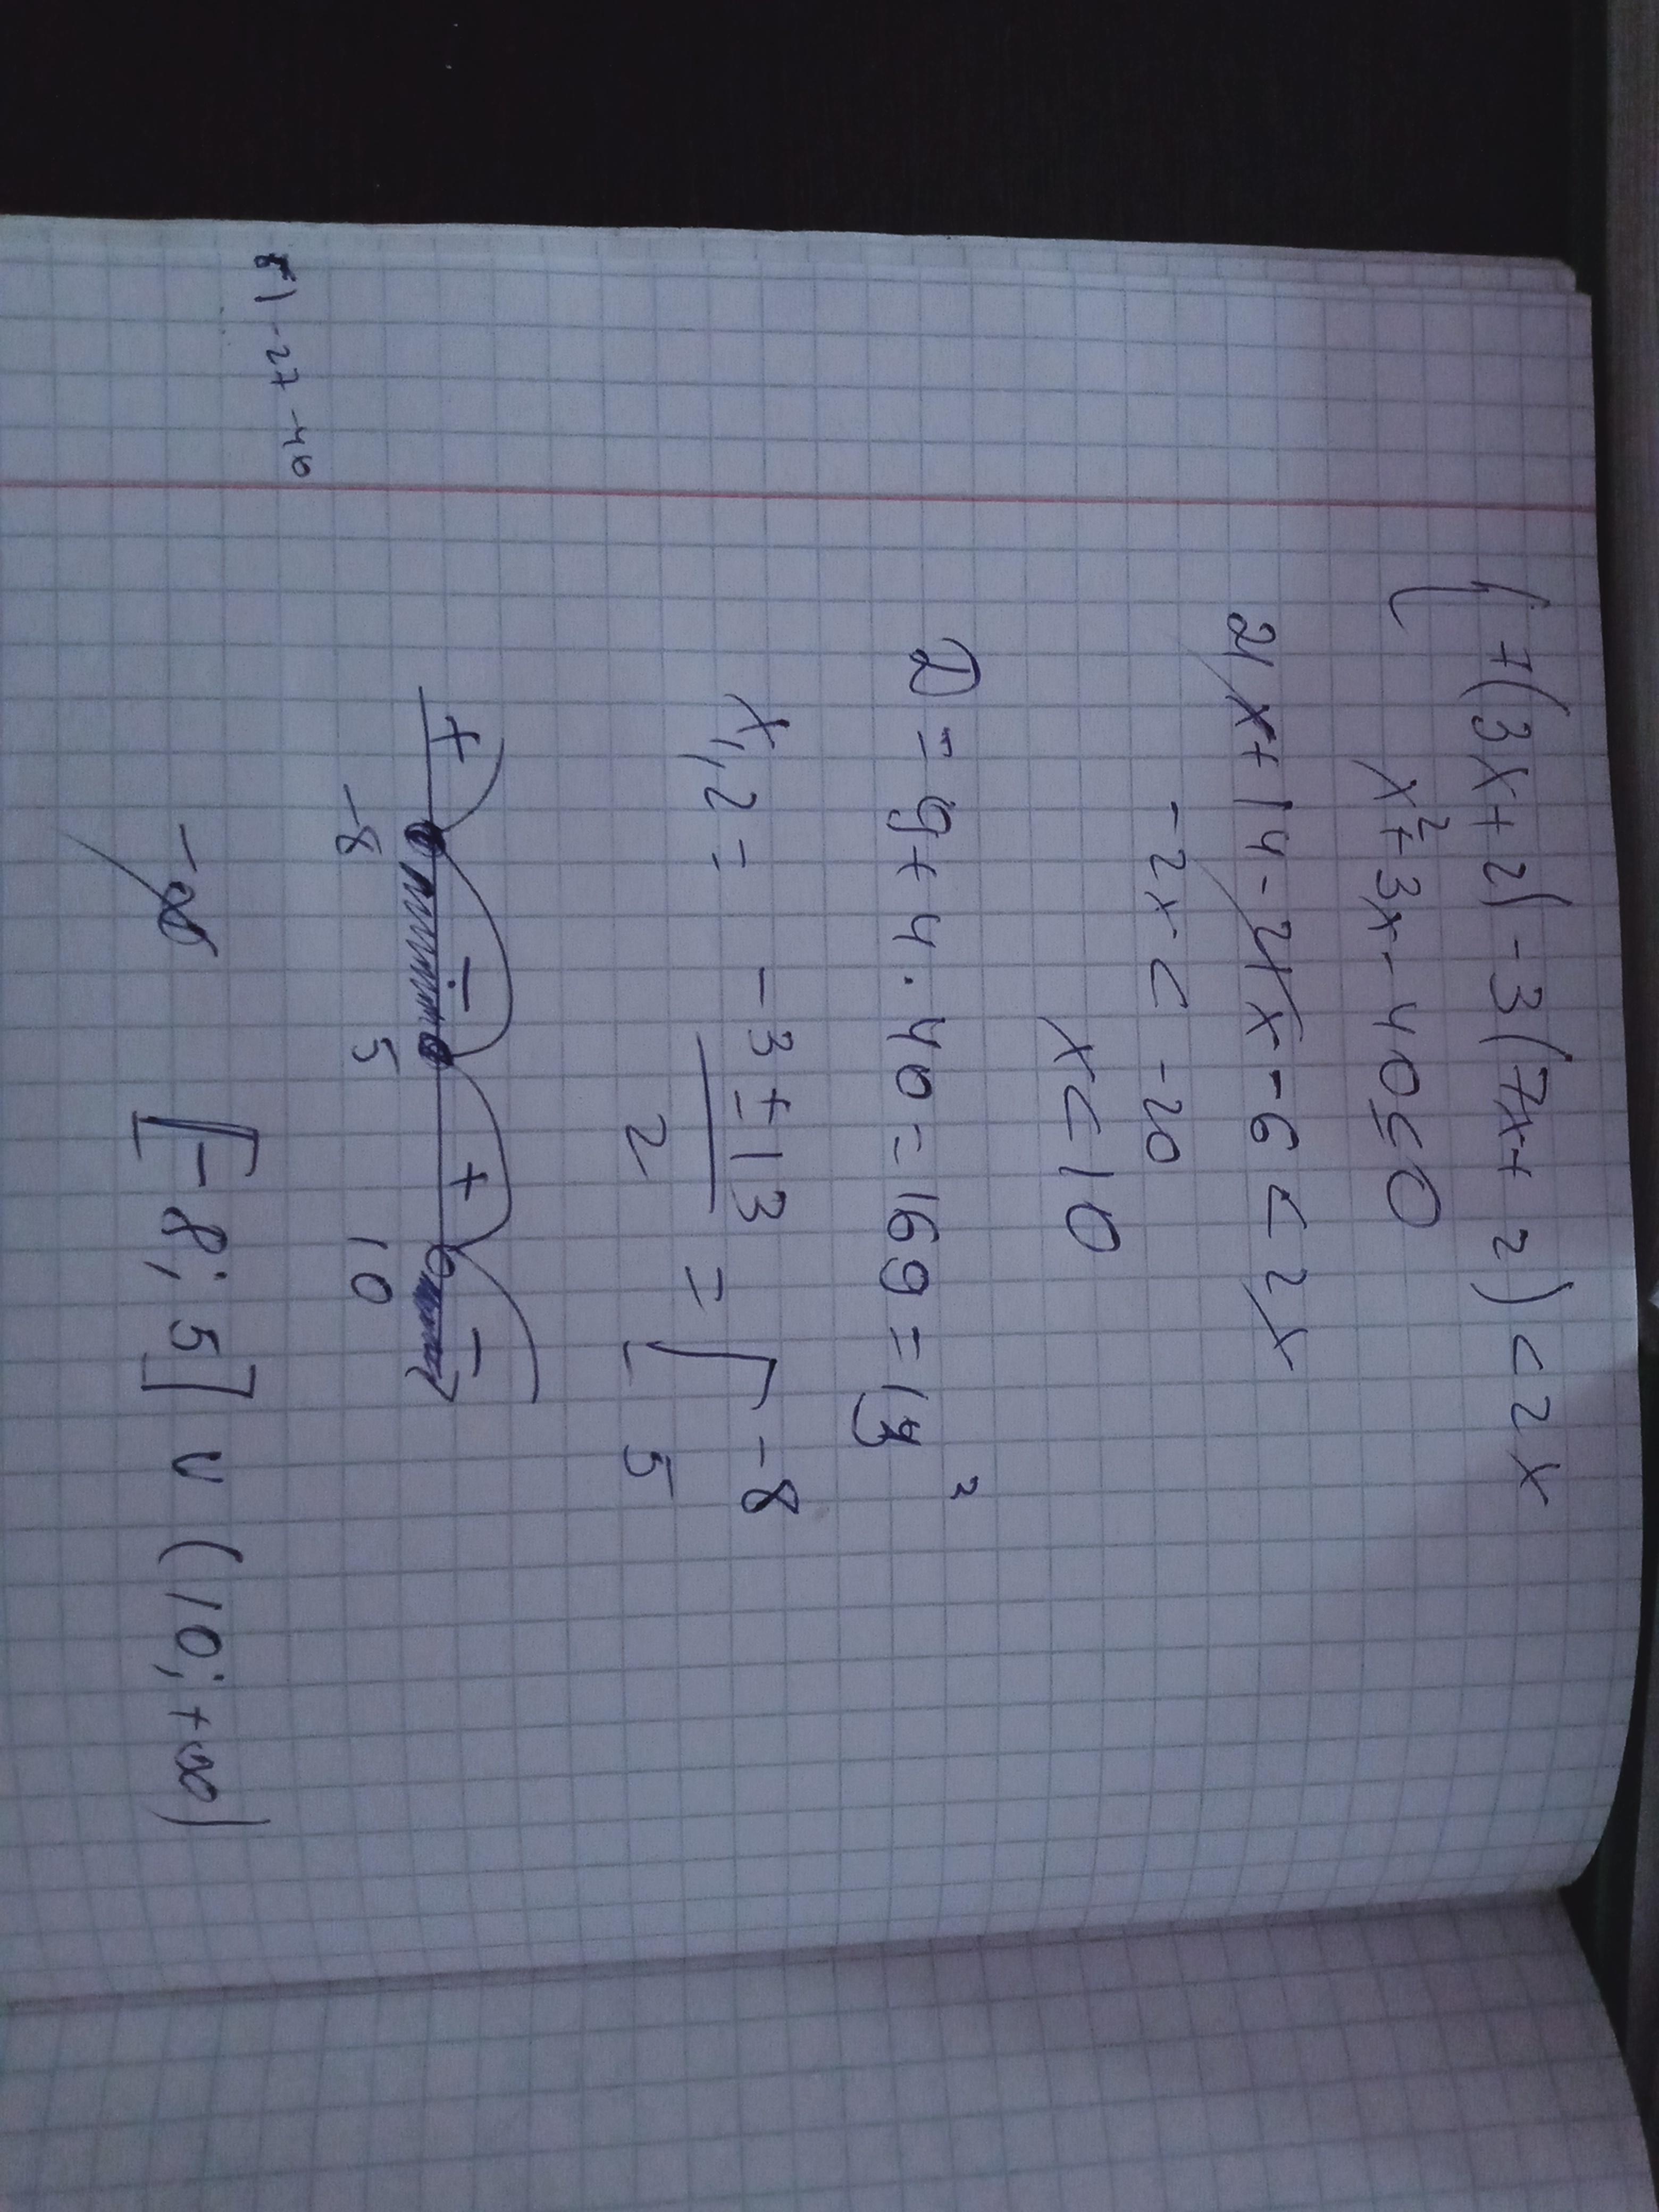 { 7(3x+2) - 3(7x+2) < 2x
x²+3x-40≤0
21x+14-21x-6<2x
-2x<-20
x<10
D = 9+4·40=169=13²
x1,2 = (-3±13)/2 = [-8
5
+ - + -
-8 5 10
81-27-40
-∞
[-8;5] ∪ (10;+∞)